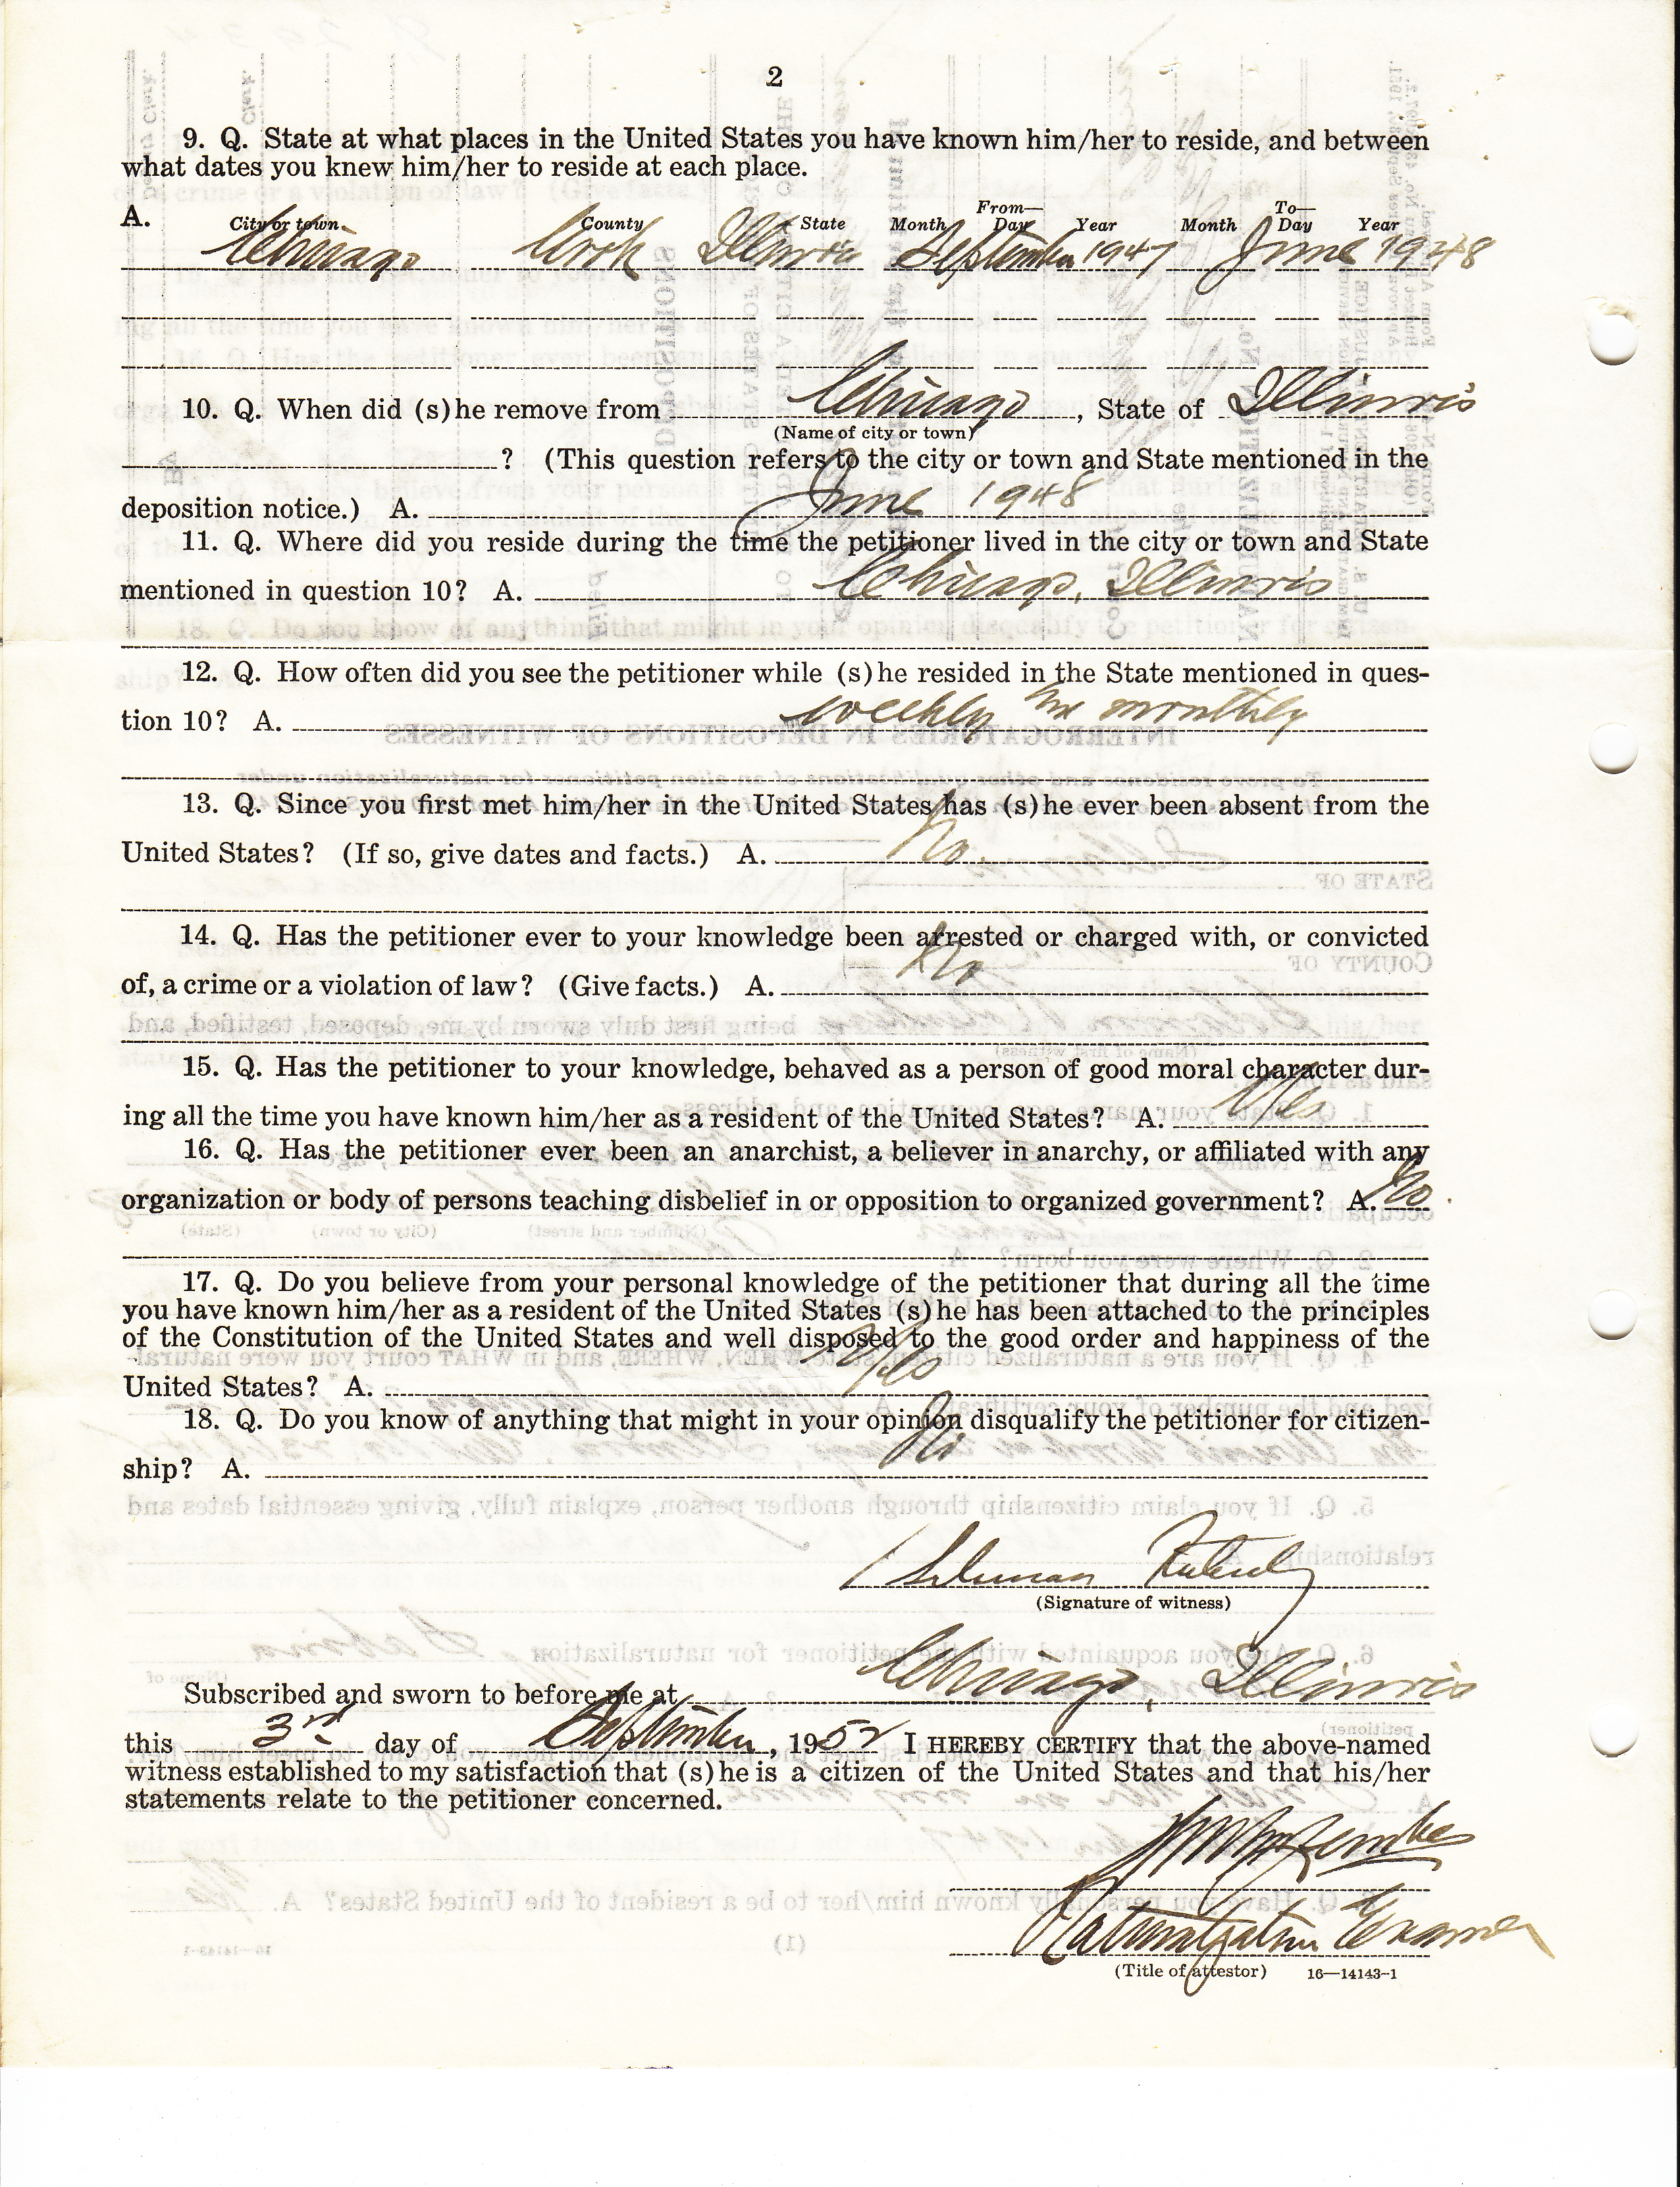 2
9. Q. State at what places in the United States you have known him/her to reside, and between
what dates you knew him/her to reside at each place.
A. City or town County State From— Month Day Year To— Month Day Year
Chicago Cook Illinois September 1947 June 1948
10. Q. When did (s)he remove from Chicago, State of Illinois
(Name of city or town)
? (This question refers to the city or town and State mentioned in the
deposition notice.) A. June 1948
11. Q. Where did you reside during the time the petitioner lived in the city or town and State
mentioned in question 10? A. Chicago, Illinois
12. Q. How often did you see the petitioner while (s)he resided in the State mentioned in ques-
tion 10? A. weekly monthly
13. Q. Since you first met him/her in the United States has (s)he ever been absent from the
United States? (If so, give dates and facts.) A. No.
14. Q. Has the petitioner ever to your knowledge been arrested or charged with, or convicted
of, a crime or a violation of law? (Give facts.) A. No
15. Q. Has the petitioner to your knowledge, behaved as a person of good moral character dur-
ing all the time you have known him/her as a resident of the United States? A. Yes
16. Q. Has the petitioner ever been an anarchist, a believer in anarchy, or affiliated with any
organization or body of persons teaching disbelief in or opposition to organized government? A. No.
17. Q. Do you believe from your personal knowledge of the petitioner that during all the time
you have known him/her as a resident of the United States (s)he has been attached to the principles
of the Constitution of the United States and well disposed to the good order and happiness of the
United States? A. Yes
18. Q. Do you know of anything that might in your opinion disqualify the petitioner for citizen-
ship? A. No
(Signature of witness)
Subscribed and sworn to before me at Chicago, Illinois
this 3rd day of September, 1952 I HEREBY CERTIFY that the above-named
witness established to my satisfaction that (s)he is a citizen of the United States and that his/her
statements relate to the petitioner concerned.
Naturalization Examiner
(Title of attestor) 16—14143-1